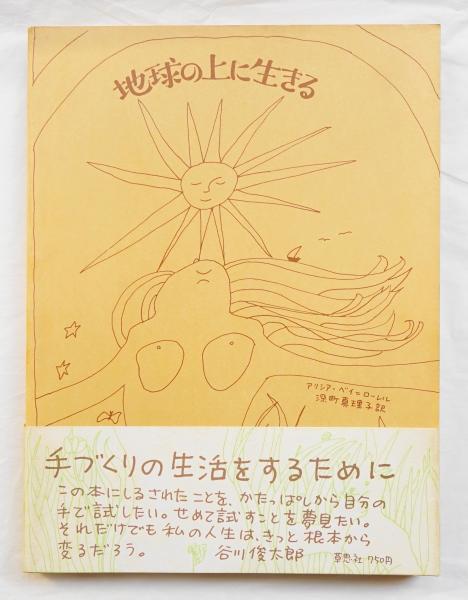 地球の上に生きる
アリシア・ベイ=ローレル
深町真理子訳
手づくりの生活をするために
この本にしるされたことを、かたっぱしから自分の
手で試したい。せめて試すことを夢見たい。
それだけでも私の人生は、きっと根本から
変るだろう。 谷川俊太郎 草思社 750円